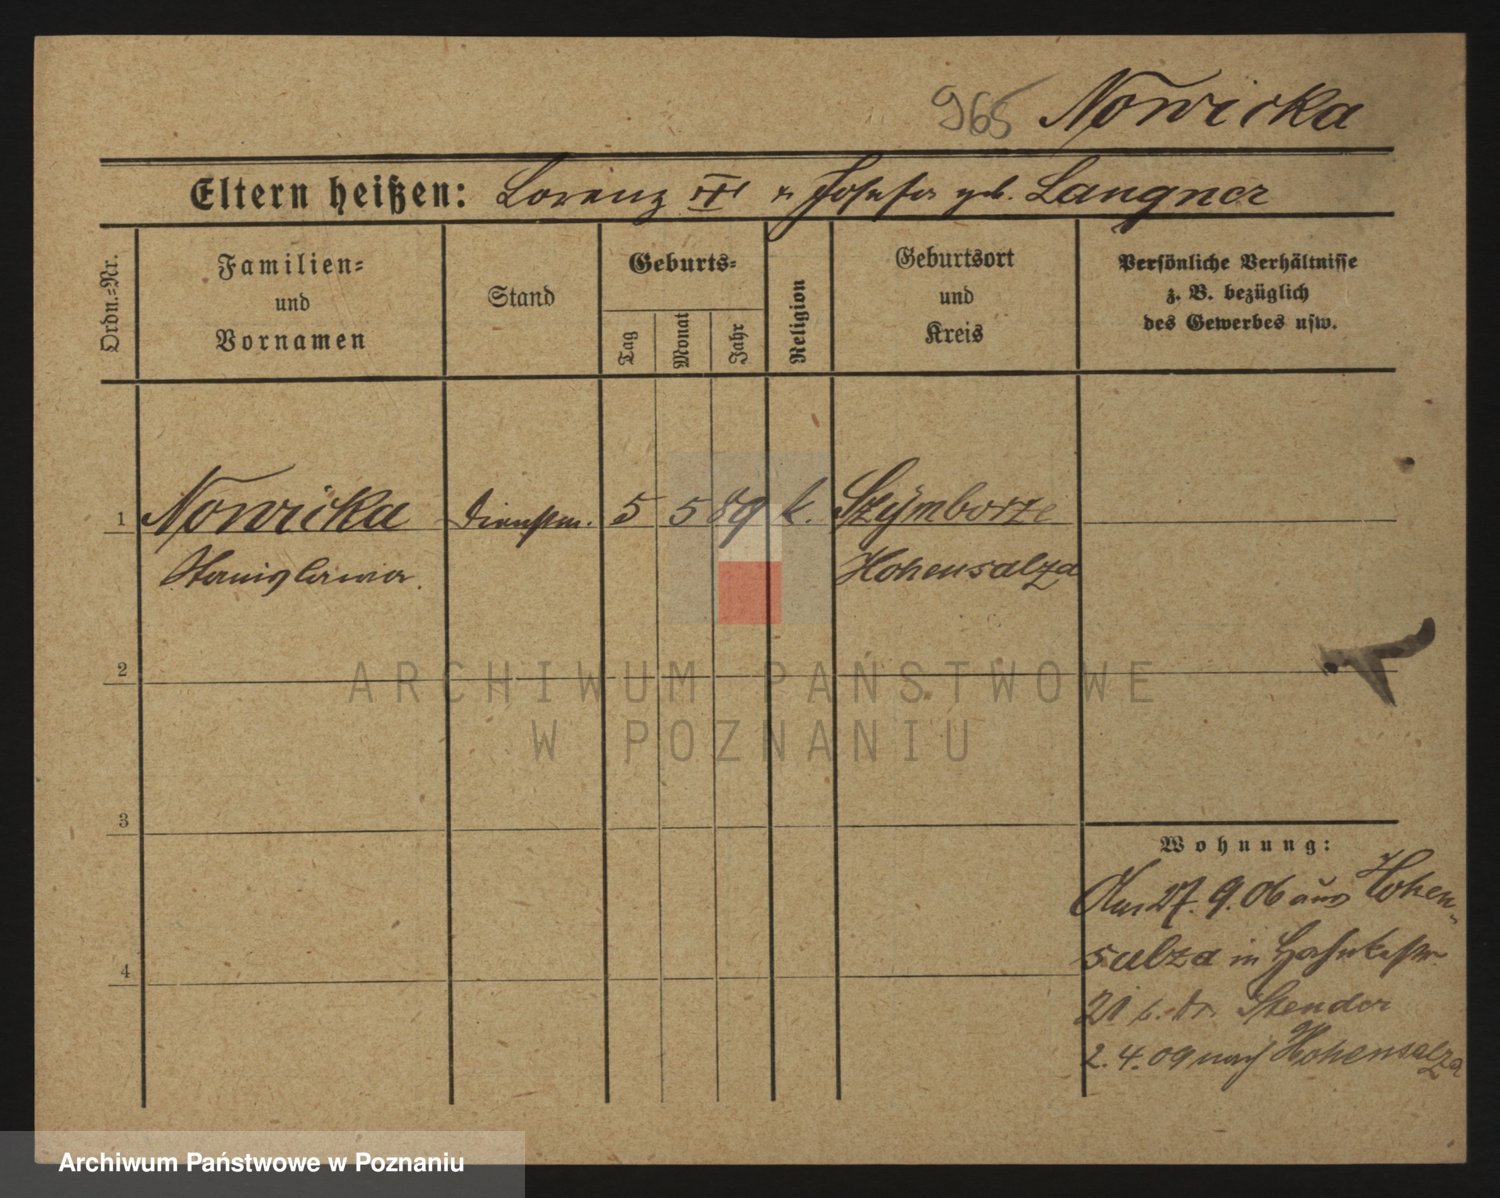 965 Nowicka
Eltern heißen: Lorenz u Josefa geb. Langner
Ordn.-Nr.
Familien-
und
Vornamen
Stand
Geburts-
Tag
Monat
Jahr
Religion
Geburtsort
und
Kreis
Persönliche Verhältnisse
z. B. bezüglich
des Gewerbes usw.
1 Nowicka Dienstm. 5 5 89 k. Szymborze
Stanislawa. Hohensalza
2
ARCHIWUM PAŃSTWOWE
W POZNANIU
3
Wohnung:
Am 27. 9. 06 aus Hohen-
4
salza in
20 b. Dr. Stender
2. 4. 09 nach Hohensalza
Archiwum Państwowe w Poznaniu